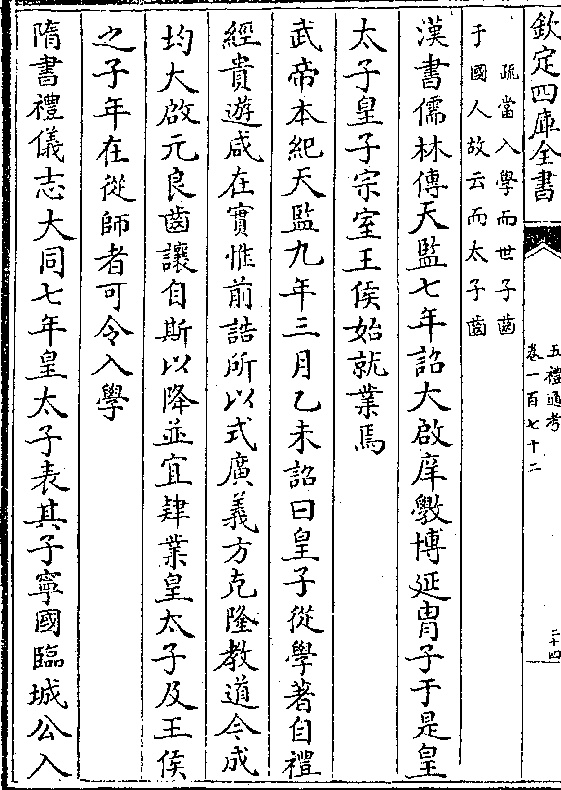 欽定四庫全書
五禮通考
卷一百七十二
二十四
疏當入學而世子齒
于國人故云而太子齒
漢書儒林傳天監七年詔大啟庠斆博延胄子于是皇
太子皇子宗室王侯始就業焉
武帝本紀天監九年三月乙未詔曰皇子從學著自禮
經貴遊咸在實惟前誥所以式廣義方克隆教道今成
均大啟元良齒讓自斯以降並宜肄業皇太子及王侯
之子年在從師者可令入學
隋書禮儀志大同七年皇太子表其子寧國臨城公入